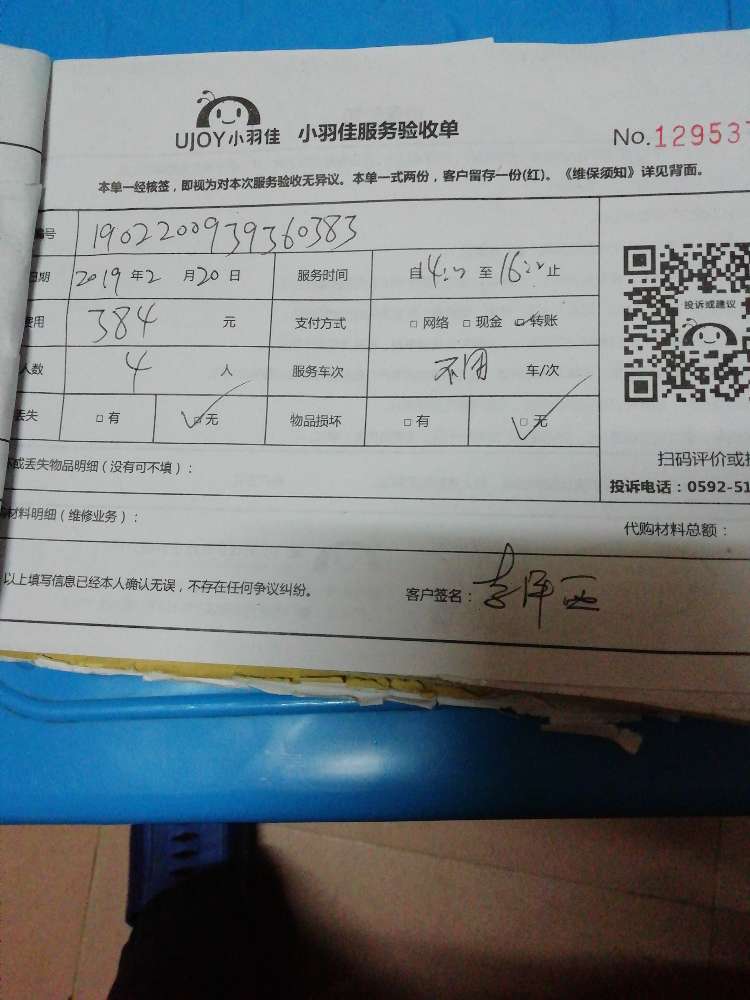 UJOY小羽佳 小羽佳服务验收单
No.129537
本单一经核签，即视为对本次服务验收无异议。本单一式两份，客户留存一份(红)。《维保须知》详见背面。
号 1902200939360383
日期 2019年2月20日 服务时间 自14:00至16:00止
用 384 元 支付方式 □网络 □现金 □转账
人数 4 人 服务车次 不用 车/次
丢失 □有 □无 物品损坏 □有 □无
投诉或建议
或丢失物品明细（没有可不填）：
扫码评价或
投诉电话：0592-51
材料明细（维修业务）：
代购材料总额：
以上填写信息已经本人确认无误，不存在任何争议纠纷。
客户签名：